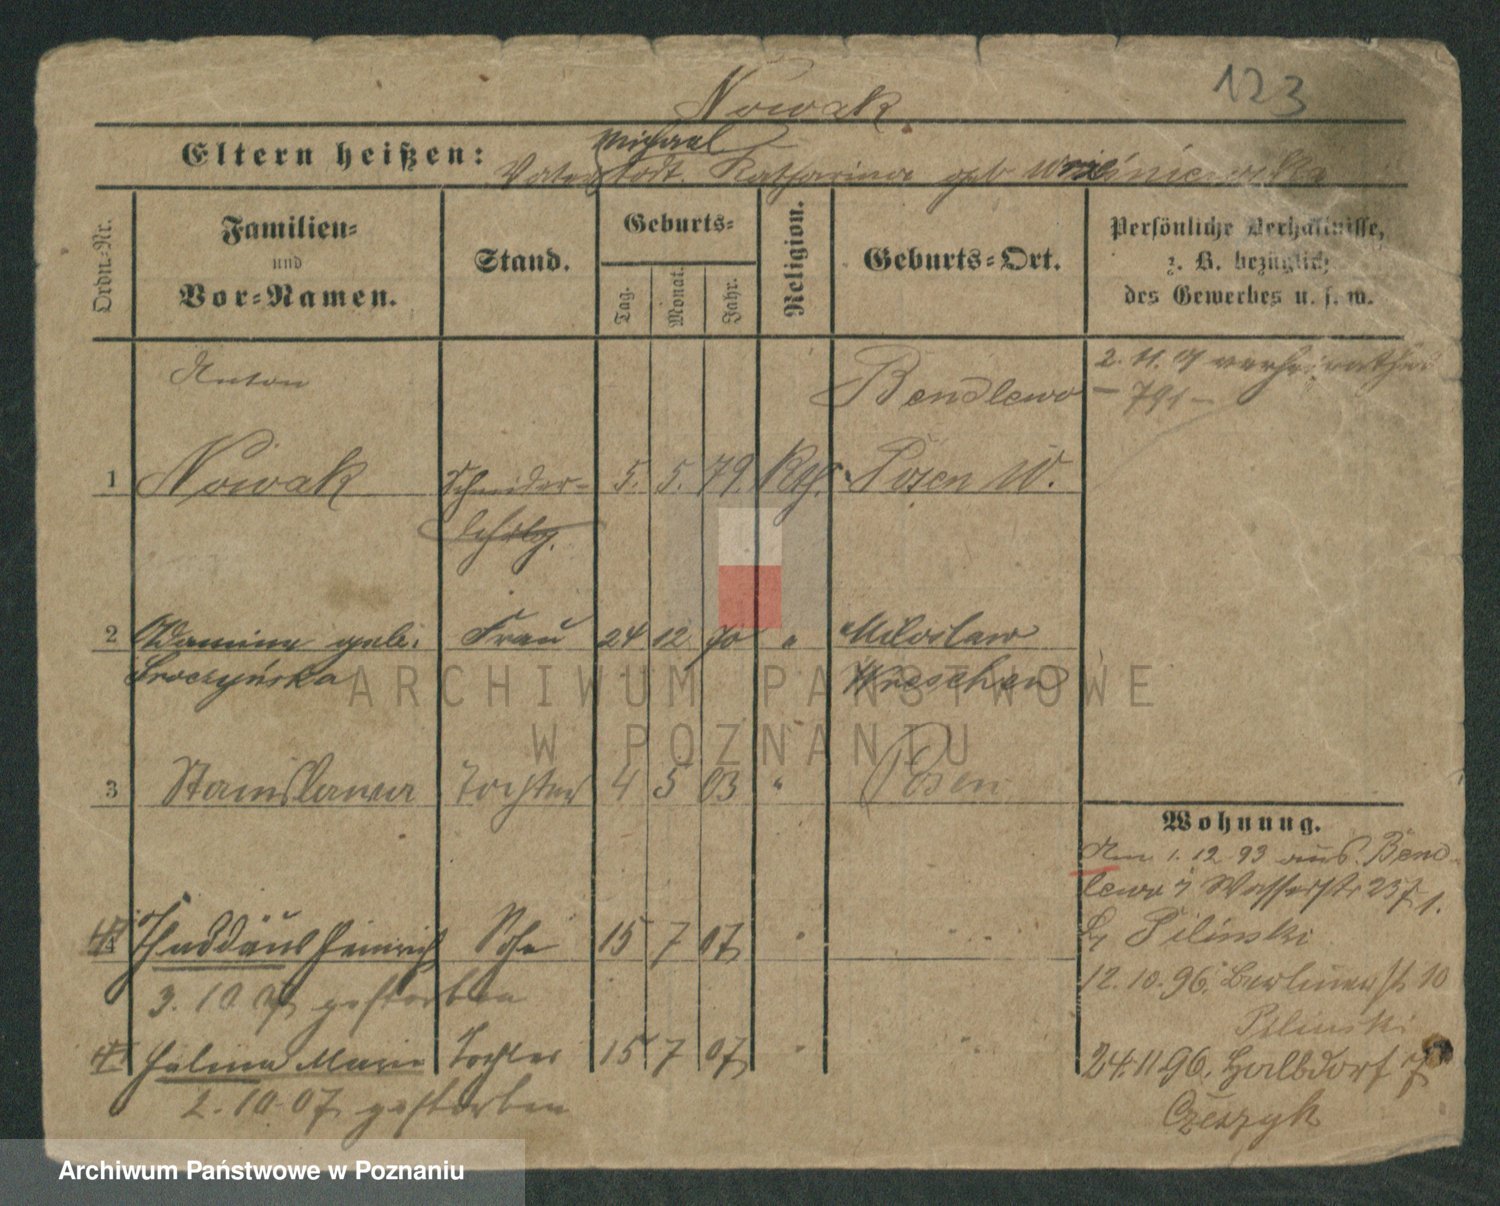 123
Nowak
Eltern heißen:
Michael
Vater todt. Katharina geb
Ordn.-Nr.
Familien-
und
Vor-Namen.
Stand.
Geburts-
Tag.
Monat.
Jahr.
Religion.
Geburts-Ort.
Persönliche Verhältnisse,
z. B. bezüglich
des Gewerbes u. s. w.
Anton
Bendlewo
2. 11. 01 verheirathet
- 791 -
1 Nowak Schneider- 5. 5. 79. Kth. Posen W.
Lehrlg.
2 geb. Frau 24 12 70 " Miloslaw
Sroczyńska Wreschen
3 Stanislawa Tochter 4 5 03 " Posen
Wohnung.
Am 1. 12 93 aus Bend-
lewo Wasserstr 25 I.
b/ Pilinski
4 Thaddäus Heinrich Sohn 15 7 07 " " "
3. 10 07 gestorben
12. 10. 96. Berlinerst 10
Pilinski
Helena Marie Tochter 15 7 07 " " "
2. 10. 07 gestorben
24. 11 96. Halbdorf 7
Czeszyk
ARCHIWUM PAŃSTWOWE
W POZNANIU
Archiwum Państwowe w Poznaniu